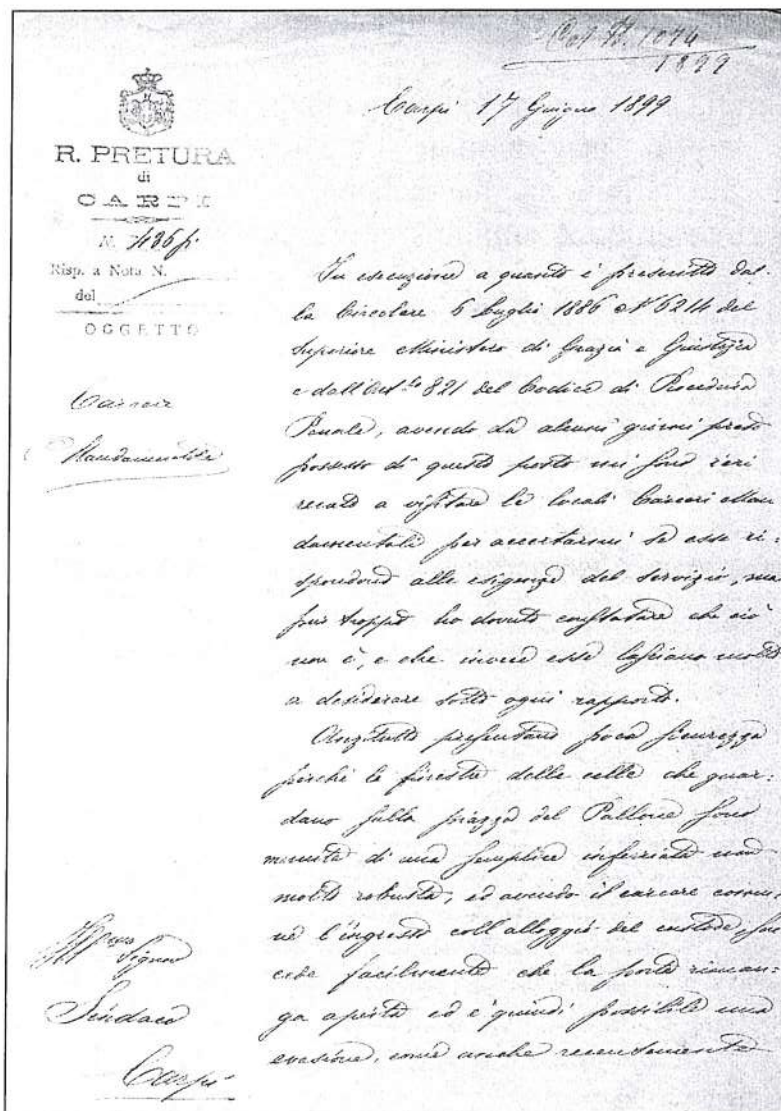 Cat. 13. N. 1074
1899
Carpi 17 Giugno 1899
R. PRETURA
di
CARPI
N. 436 p.
Risp. a Nota N.
del
OGGETTO
Carcere
Mandamentale
In esecuzione a quanto è prescritto dal-
la Circolare 6 Luglio 1886 N° 6214 del
Superiore Ministero di Grazia e Giustizia
e dall'Art.lo 821 del Codice di Procedura
Penale, avendo da alcuni giorni preso
possesso di questo posto mi sono ieri
recato a visitare le locali Carceri Man
damentali per accertarmi se esse ri=
spondono alle esigenze del servizio, ma
pur troppo ho dovuto constatare che ciò
non è, e che invece esse lasciano molto
a desiderare sotto ogni rapporto.
Anzitutto presentano poca sicurezza
perchè le finestre delle celle che guar=
dano sulla piazza del Pallone sono
munite di una semplice inferriata non
molto robusta, ed avendo il carcere comu
ne l'ingresso coll'alloggio del custode, suc
cede facilmente che la porta riman=
ga aperta ed è quindi possibile una
evasione, come anche recentemente
Ill.mo Signor
Sindaco
Carpi